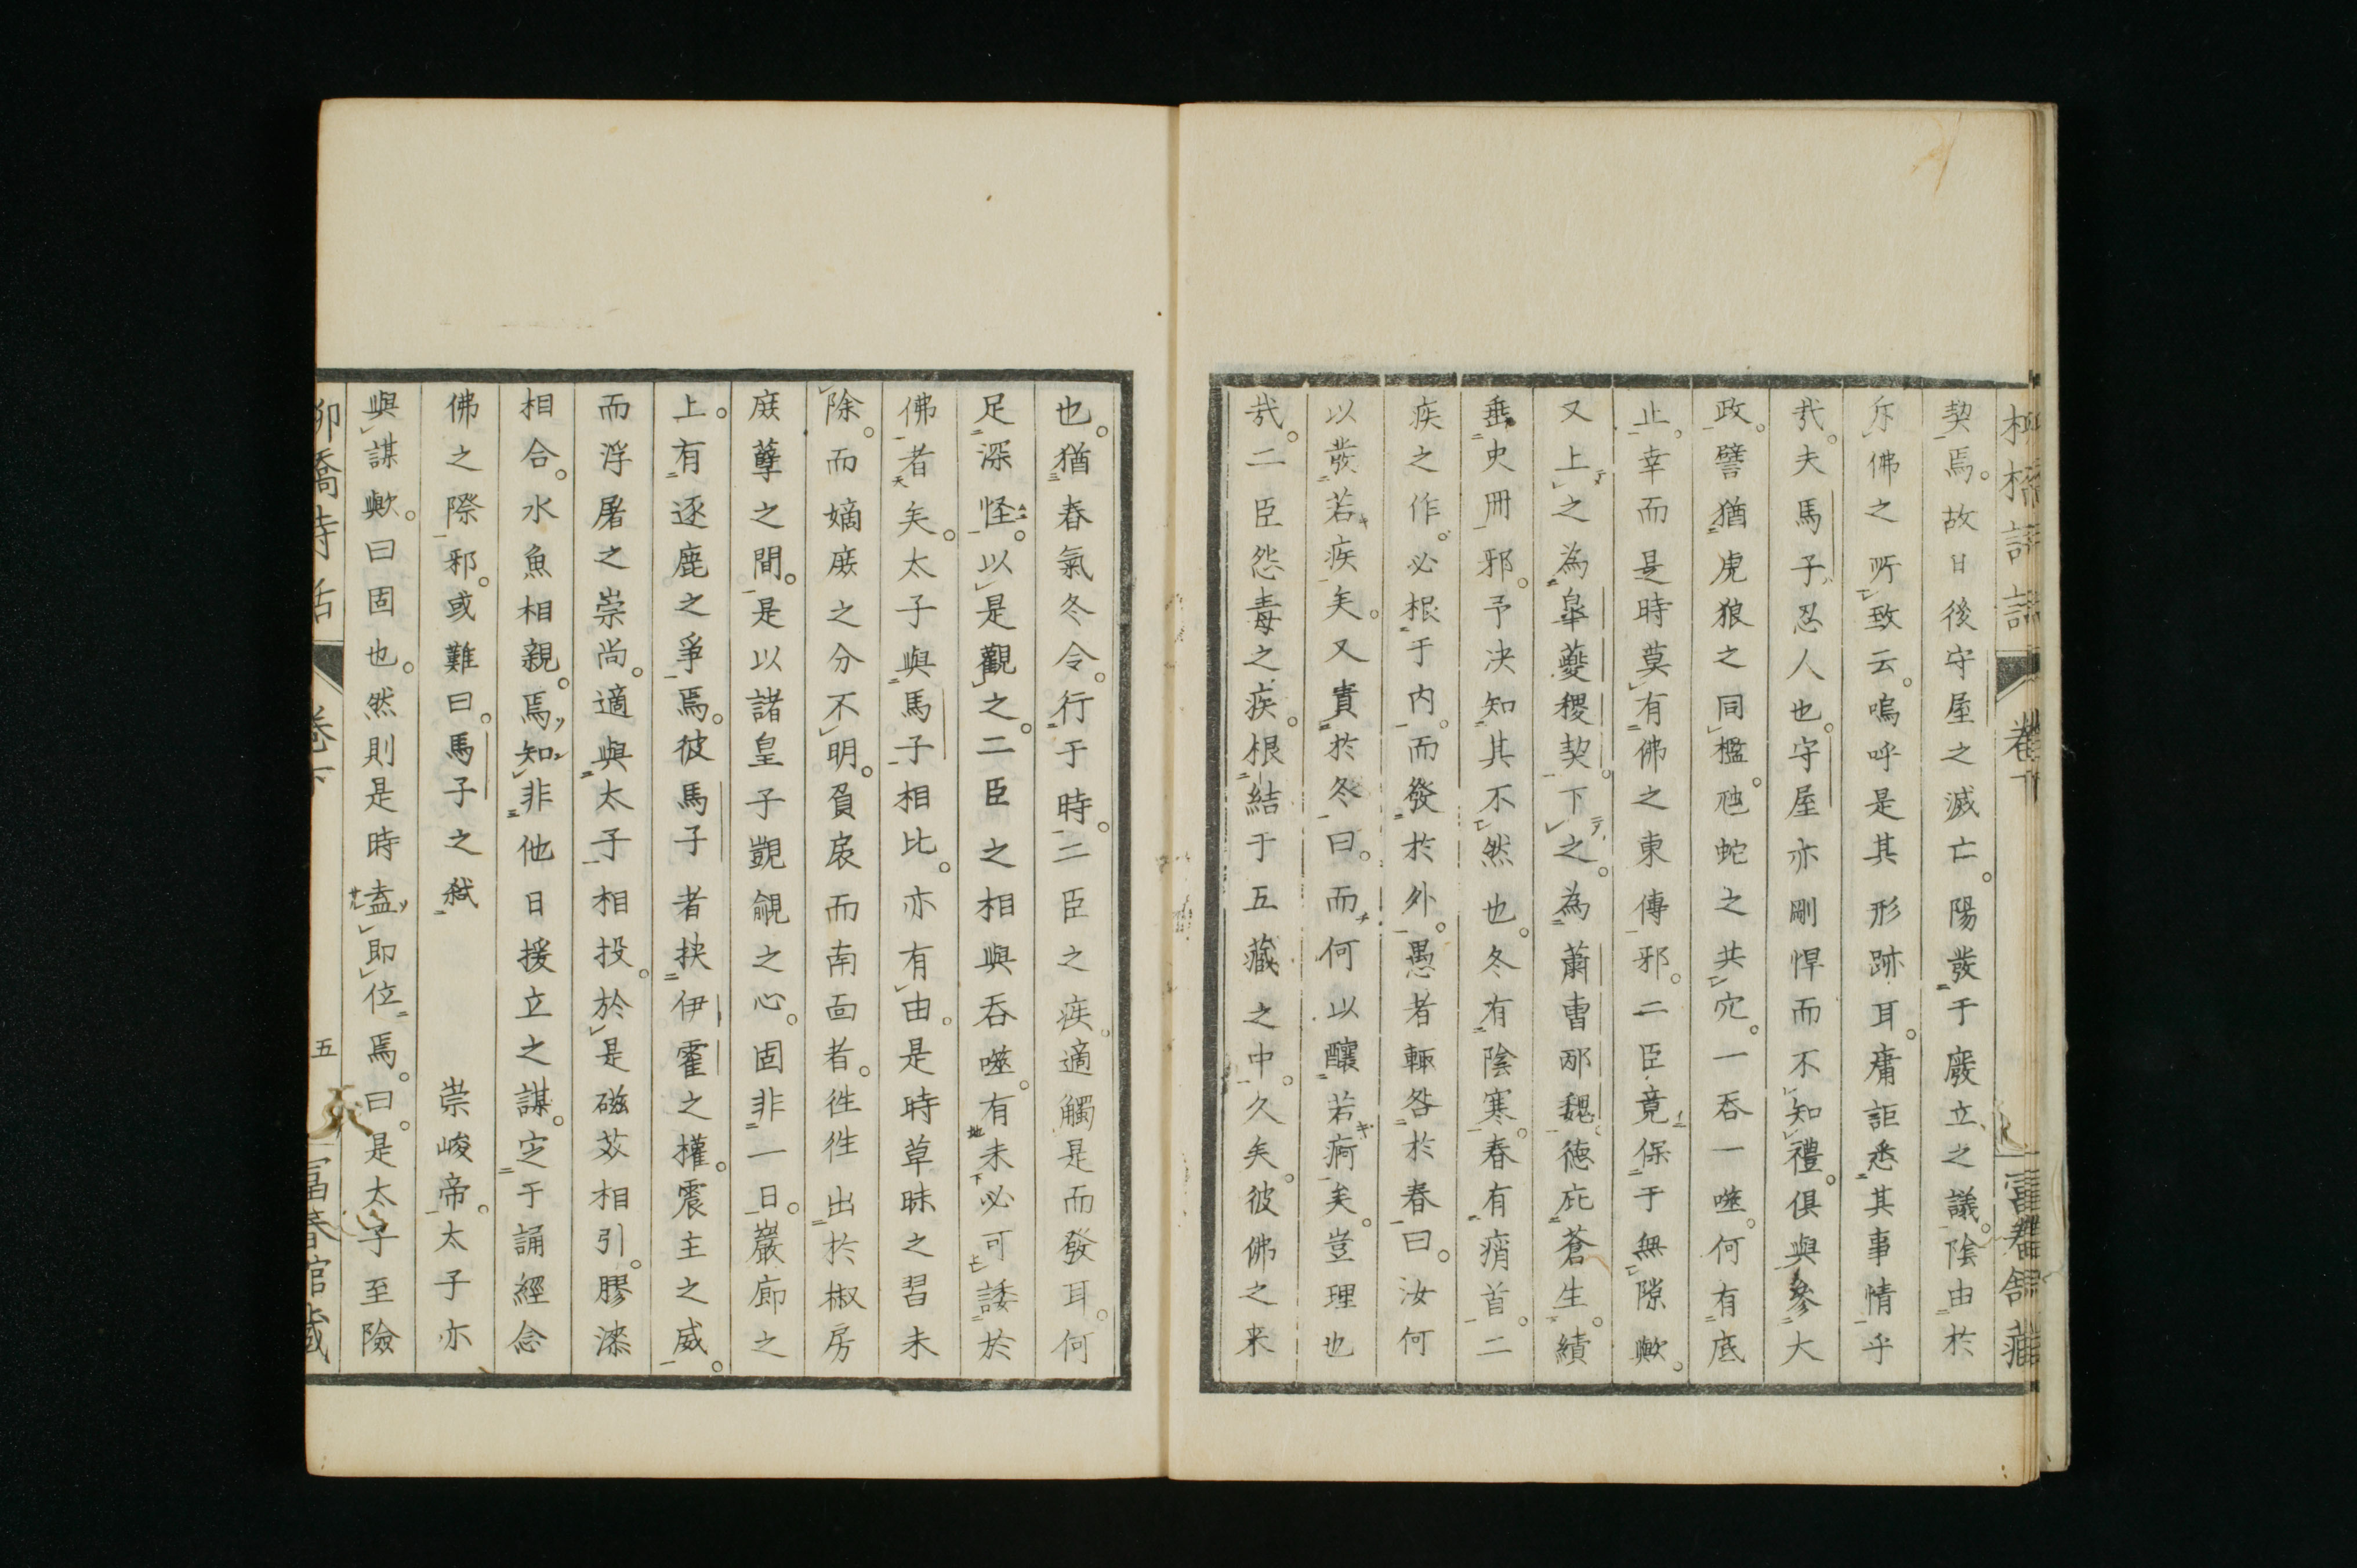 契焉。故日後守屋之滅亡。陽發于廢立之議。陰由於
斥佛之所致云。嗚呼是其形跡耳。庸詎悉其事情乎
㢤。夫馬子忍人也。守屋亦剛悍而不知禮。俱與參大
政。譬猶虎狼之同檻。虺蛇之共穴。一吞一噬。何有底
止。幸而是時莫有佛之東傳邪。二臣竟保于無隙歟。
又上之為皐夔稷契。下之。為蕭曹邴魏。徳庇蒼生。績
垂史冊邪。予決知其不然也。冬有陰寒。春有痟首。二
疾之作。必根于内。而發於外。愚者輒咎於春曰。汝何
以發若疾矣。又責於冬曰。而何以釀若痾矣。豈理也
㢤。二臣怨毒之疾。根結于五藏之中。久矣。彼佛之来
也。猶春氣冬令。行于時。二臣之疾。適觸是而發耳。何
足深怪。以是觀之。二臣之相與吞噬。有未必可諉於
佛者矣。太子與馬子相比。亦有由。是時草昧之習未
除。而嫡庶之分不明。負扆而南面者。往往出於椒房
庶孽之間。是以諸皇子覬覦之心。固非一日。巖廊之
上。有逐鹿之爭焉。彼馬子者挟伊霍之權。震主之威。
而浮屠之崇尚。適與太子相投。於是磁芥相引。膠漆
相合。水魚相親。焉知非他日援立之謀。定于誦經念
佛之際邪。或難曰。馬子之弑　崇峻帝。太子亦
與謀歟。曰固也。然則是時盍即位焉。曰。是太子至險
柳橋詩話　卷下　五　富春館藏